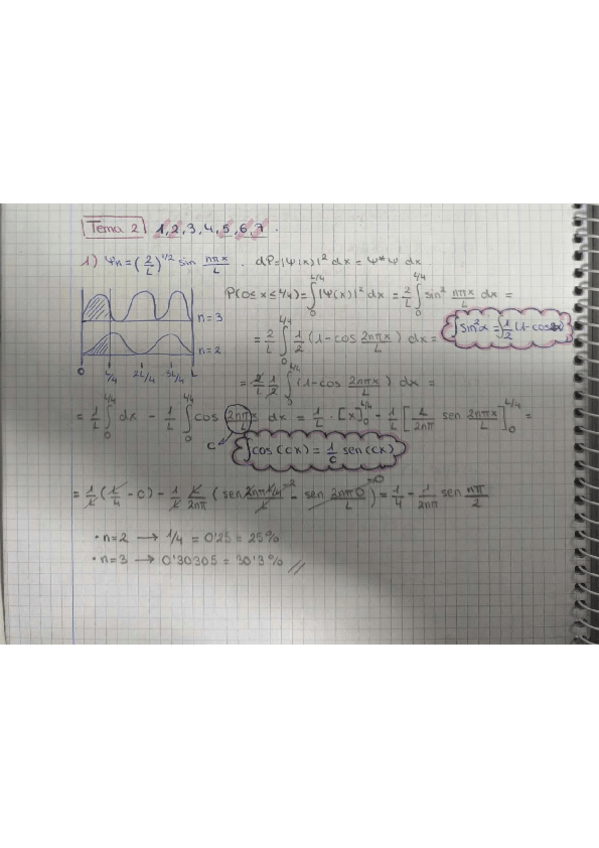 Tema 2 1,2,3,4,5,6,7.
1) Ψn = (2/L)^1/2 sin nπx/L . dP=|Ψ(x)|² dx = Ψ*Ψ dx
P(0≤x≤L/4) = ∫₀^L/4 |Ψ(x)|² dx = 2/L ∫₀^L/4 sin² nπx/L dx =
n=3
n=2
0 L/4 2L/4 3L/4 L
= 2/L ∫₀^L/4 1/2 (1-cos 2nπx/L) dx =
∫sin²x = ∫1/2 (1-cos2x)
= 2/L 1/2 ∫₀^L/4 (1-cos 2nπx/L) dx =
= 1/L ∫₀^L/4 dx - 1/L ∫₀^L/4 cos 2nπx/L dx = 1/L · [x]₀^L/4 - 1/L [L/2nπ sen 2nπx/L]₀^L/4 =
c
∫cos(cx) = 1/c sen(cx)
= 1/L (L/4 - 0) - 1/L L/2nπ (sen 2nπL/4/L - sen 2nπ0/L) = 1/4 - 1/2nπ sen nπ/2
2 =0
· n=2 → 1/4 = 0'25 = 25%
· n=3 → 0'30305 = 30'3% //